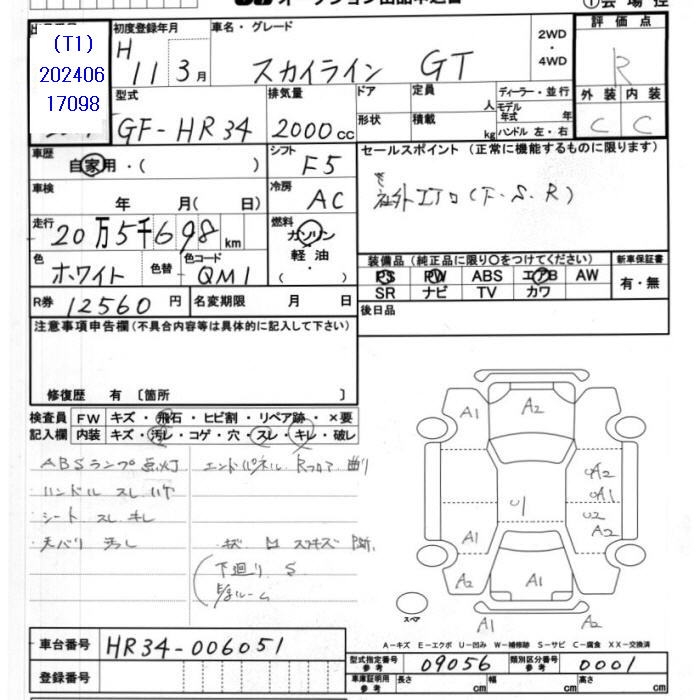 オークション出品申込書
(T1)
202406
17098
初度登録年月
H 11 3月
車名・グレード
スカイライン GT
2WD
・
4WD
評価点
R
外装 内装
C C
型式
GF-HR34
排気量
2000cc
ドア
形状
定員 人
積載 kg
ディーラー・並行
モデル年式 年
ハンドル 左・右
車歴
自家用・( )
シフト
F5
車検
年 月( 日)
冷房
AC
走行
20万5千698km
燃料
ガソリン
・
軽油
・
( )
色
ホワイト
色替
色コード
QM1
R券 12560円
名変期限 月 日
セールスポイント (正常に機能するものに限ります)
社外エアロ(F.S.R)
装備品 (純正品に限り○をつけてください)
PS PW ABS エアB AW
SR ナビ TV カワ
新車保証書
有・無
後日品
注意事項申告欄(不具合内容等は具体的に記入して下さい)
修復歴 有 〔箇所 〕
検査員
記入欄
FW キズ・飛石・ヒビ割・リペア跡・×要
内装 キズ・汚レ・コゲ・穴・スレ・キレ・破レ
ABSランプ点灯
ハンドル スレ ハゲ
シート スレ キレ
天バリ 汚レ
エンドパネル Rフロア 曲り
下廻り S
A1 A2 A1
A2
A1
U1 U2
A2
A1 A1
A2
A1 A2
スペア
A-キズ E-エクボ U-凹み W-補修跡 S-サビ C-腐食 XX-交換済
車台番号 HR34-006051
登録番号
型式指定番号
参考
09056
類別区分番号
参考
0001
車庫証明用
参考
長さ cm 幅 cm 高さ cm